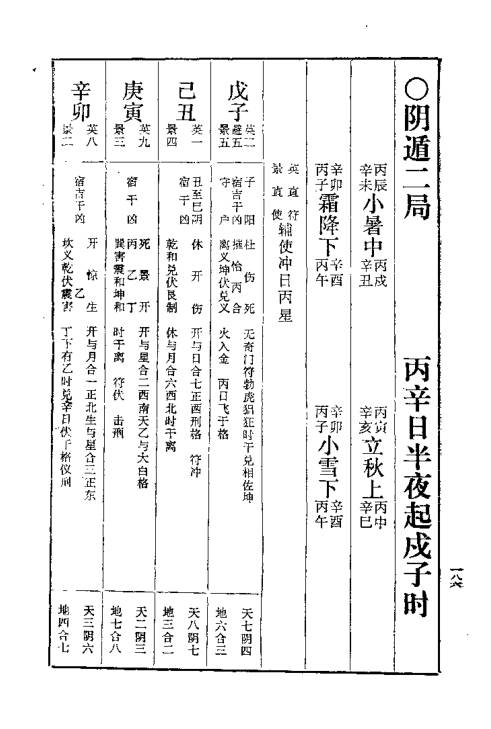 〇阴遁二局 丙辛日半夜起戌子时
丙辰 辛未 小暑中 丙戌 辛丑
丙寅 辛亥 立秋上 丙申 辛巳
辛卯 丙子 霜降下 辛酉 丙午
辛卯 丙子 小雪下 辛酉 丙午
英直符
景直使
辅使冲日丙星
戊子
英二
景五
避五
子阳
宿吉干凶
守户
杜伤死
摧恰丙合
离义坤伏兑义
无奇门符勃虎猖狂时干兑相佐坤
火入金 丙日飞干格
天七阴四
地六合三
己丑
英一
景四
丑至巳阴
宿干凶
休开伤
乾和兑伏艮制
开与日合七正西刑格 符冲
休与月合六西北时干离
天八阴七
地三合二
庚寅
英九
景三
宿干凶
死景开
丙乙丁
巽害震和坤和
开与星合二西南天乙与大白格
时干离 符伏 击刑
天二阴三
地七合八
辛卯
英八
景二
宿吉干凶
开惊生
乙
坎义乾伏震害
开与月合一正北生与星合三正东
丁下有乙时兑辛日伏干格仪刑
天三阴六
地四合七
一八六